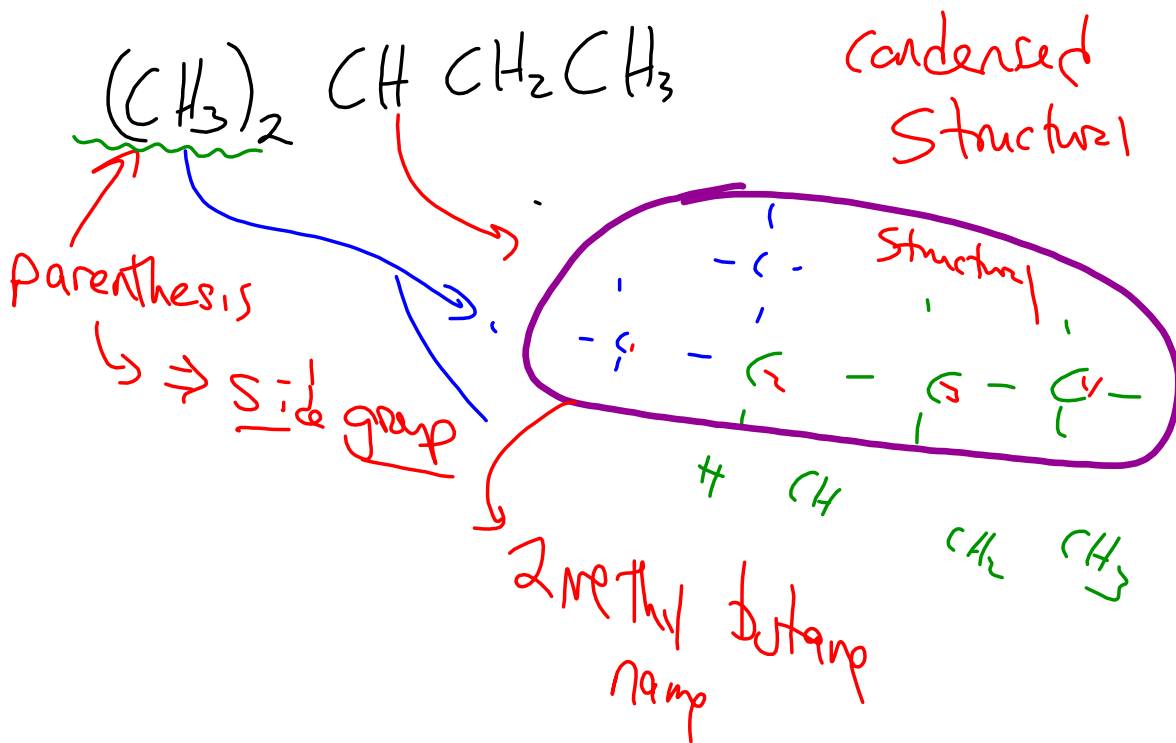 (CH3)2 CH CH2CH3
Condensed
Structural
Parenthesis
⇒ Side group
Structural
- C -
- C1 - C2 - C3 - C4 -
H CH
CH2 CH3
2 methyl butane
name